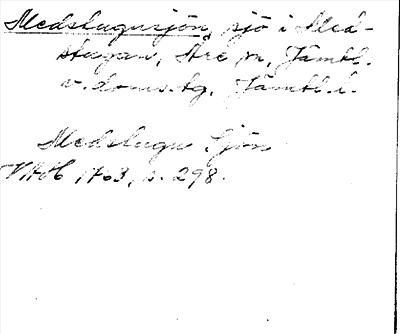 Medstugusjön, sjö i Med-
stugan, Åre sn, Jämtl.
v. doms.tg. Jämtl. l.
Medstugu Sjön
VAH 1763, s. 298.